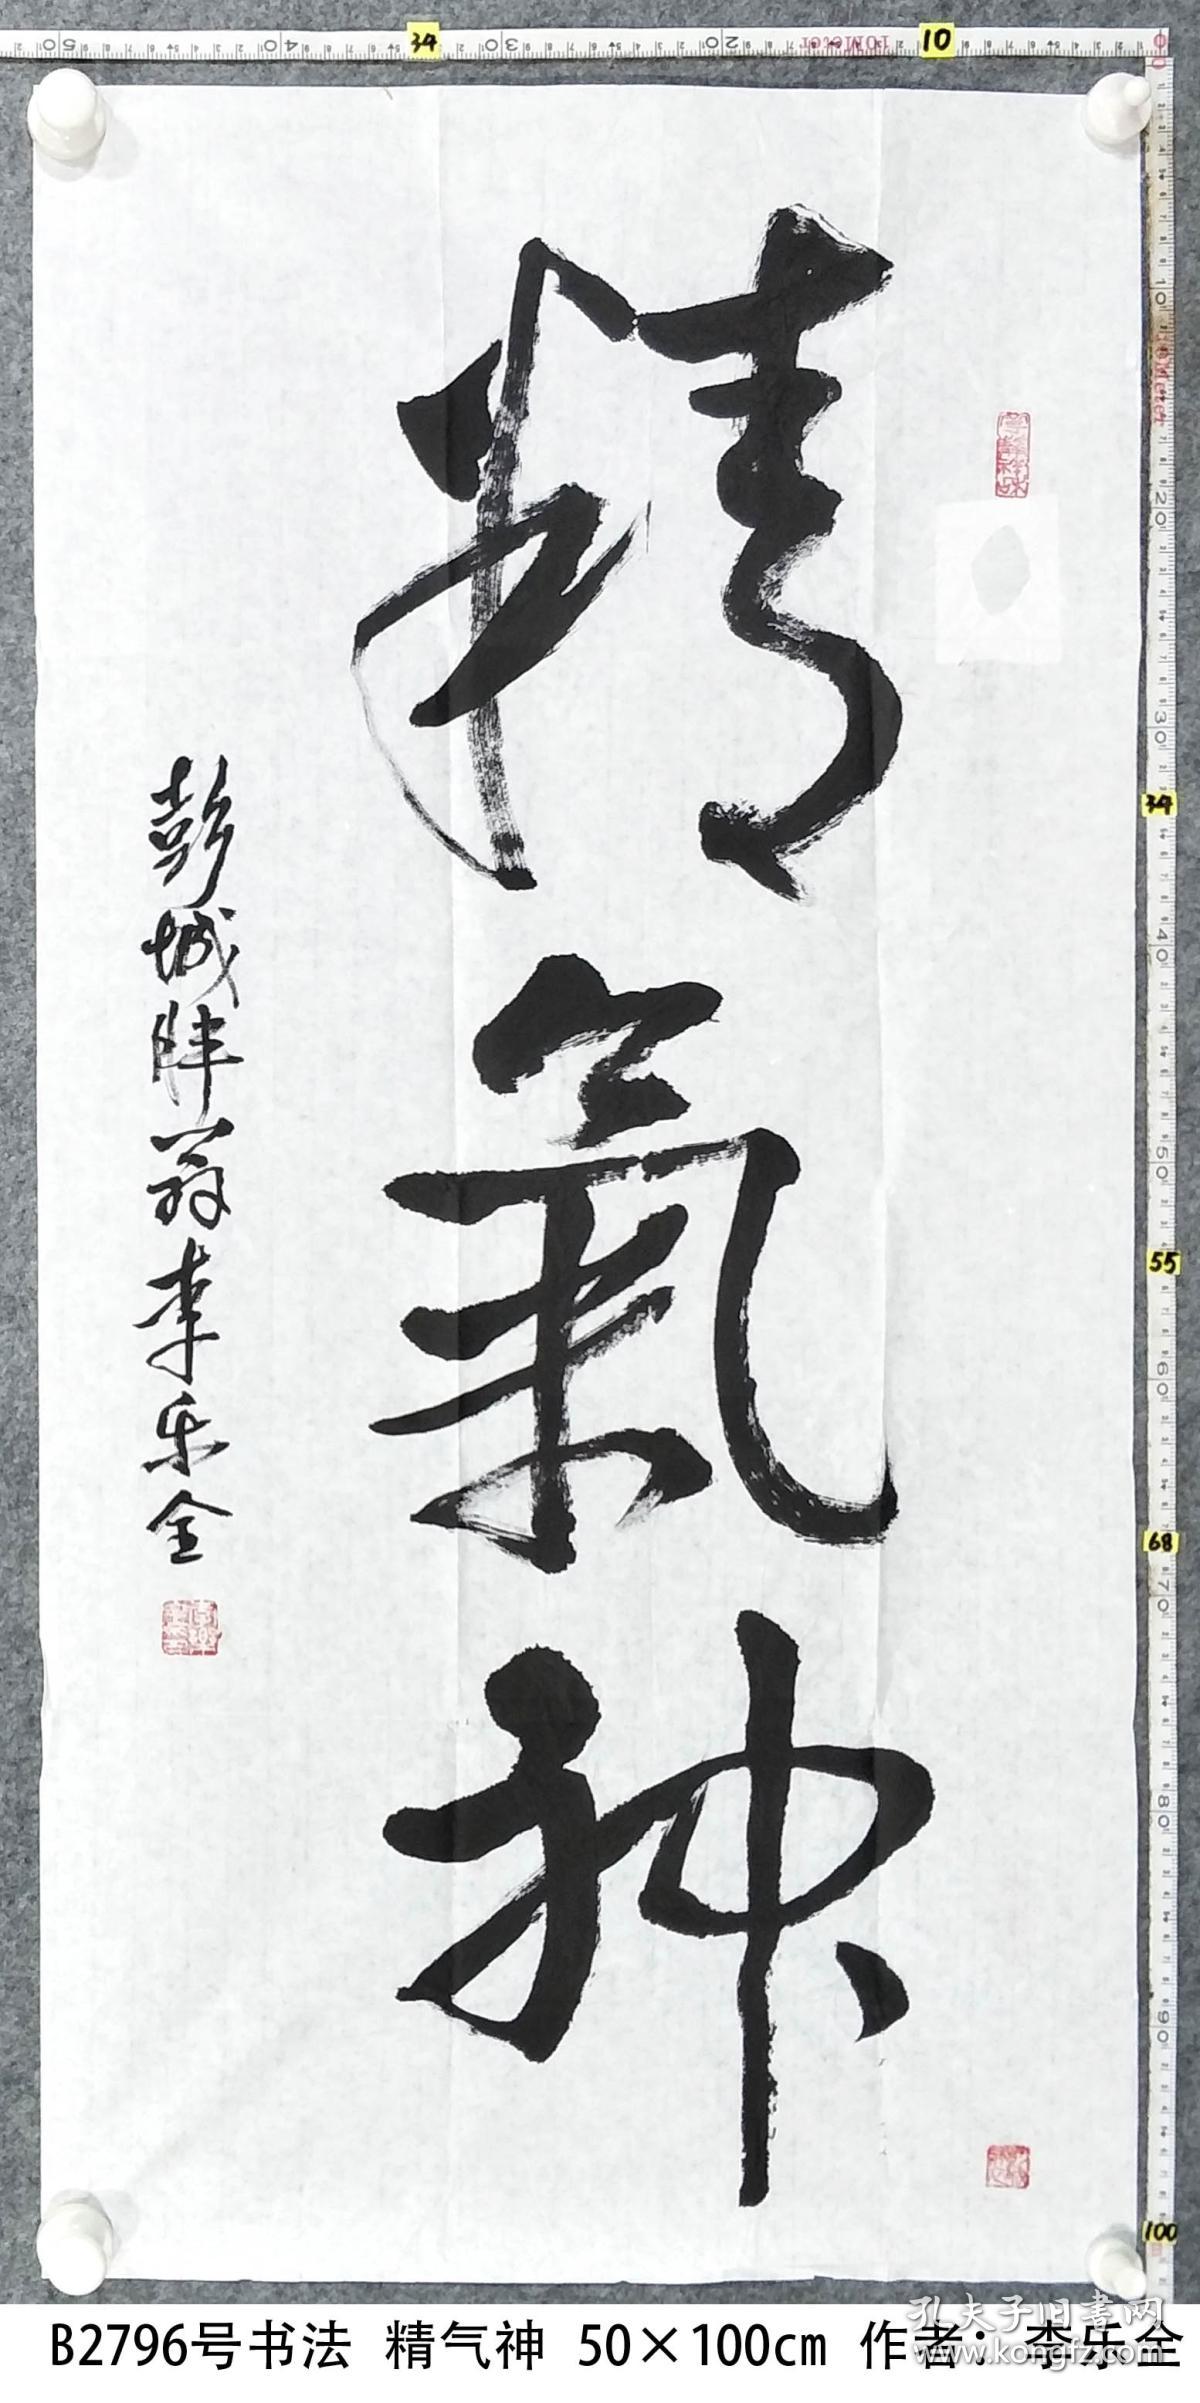 精氣神
彭城胖翁李乐全
34
10
34
55
68
100
B2796号书法 精气神 50×100cm 作者：李乐全
孔夫子旧書网
www.kongfz.com